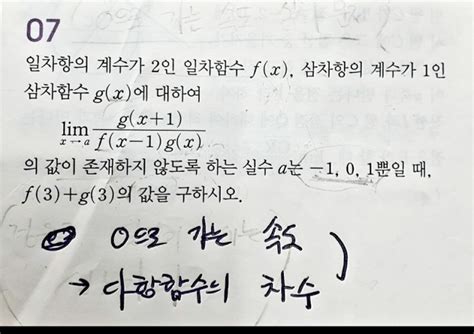 07
일차항의 계수가 2인 일차함수 f(x), 삼차항의 계수가 1인
삼차함수 g(x)에 대하여
lim x→a g(x+1) / f(x-1)g(x)
의 값이 존재하지 않도록 하는 실수 a는 -1, 0, 1뿐일 때,
f(3)+g(3)의 값을 구하시오.
0으로 가는 속도
→ 다항함수의 차수